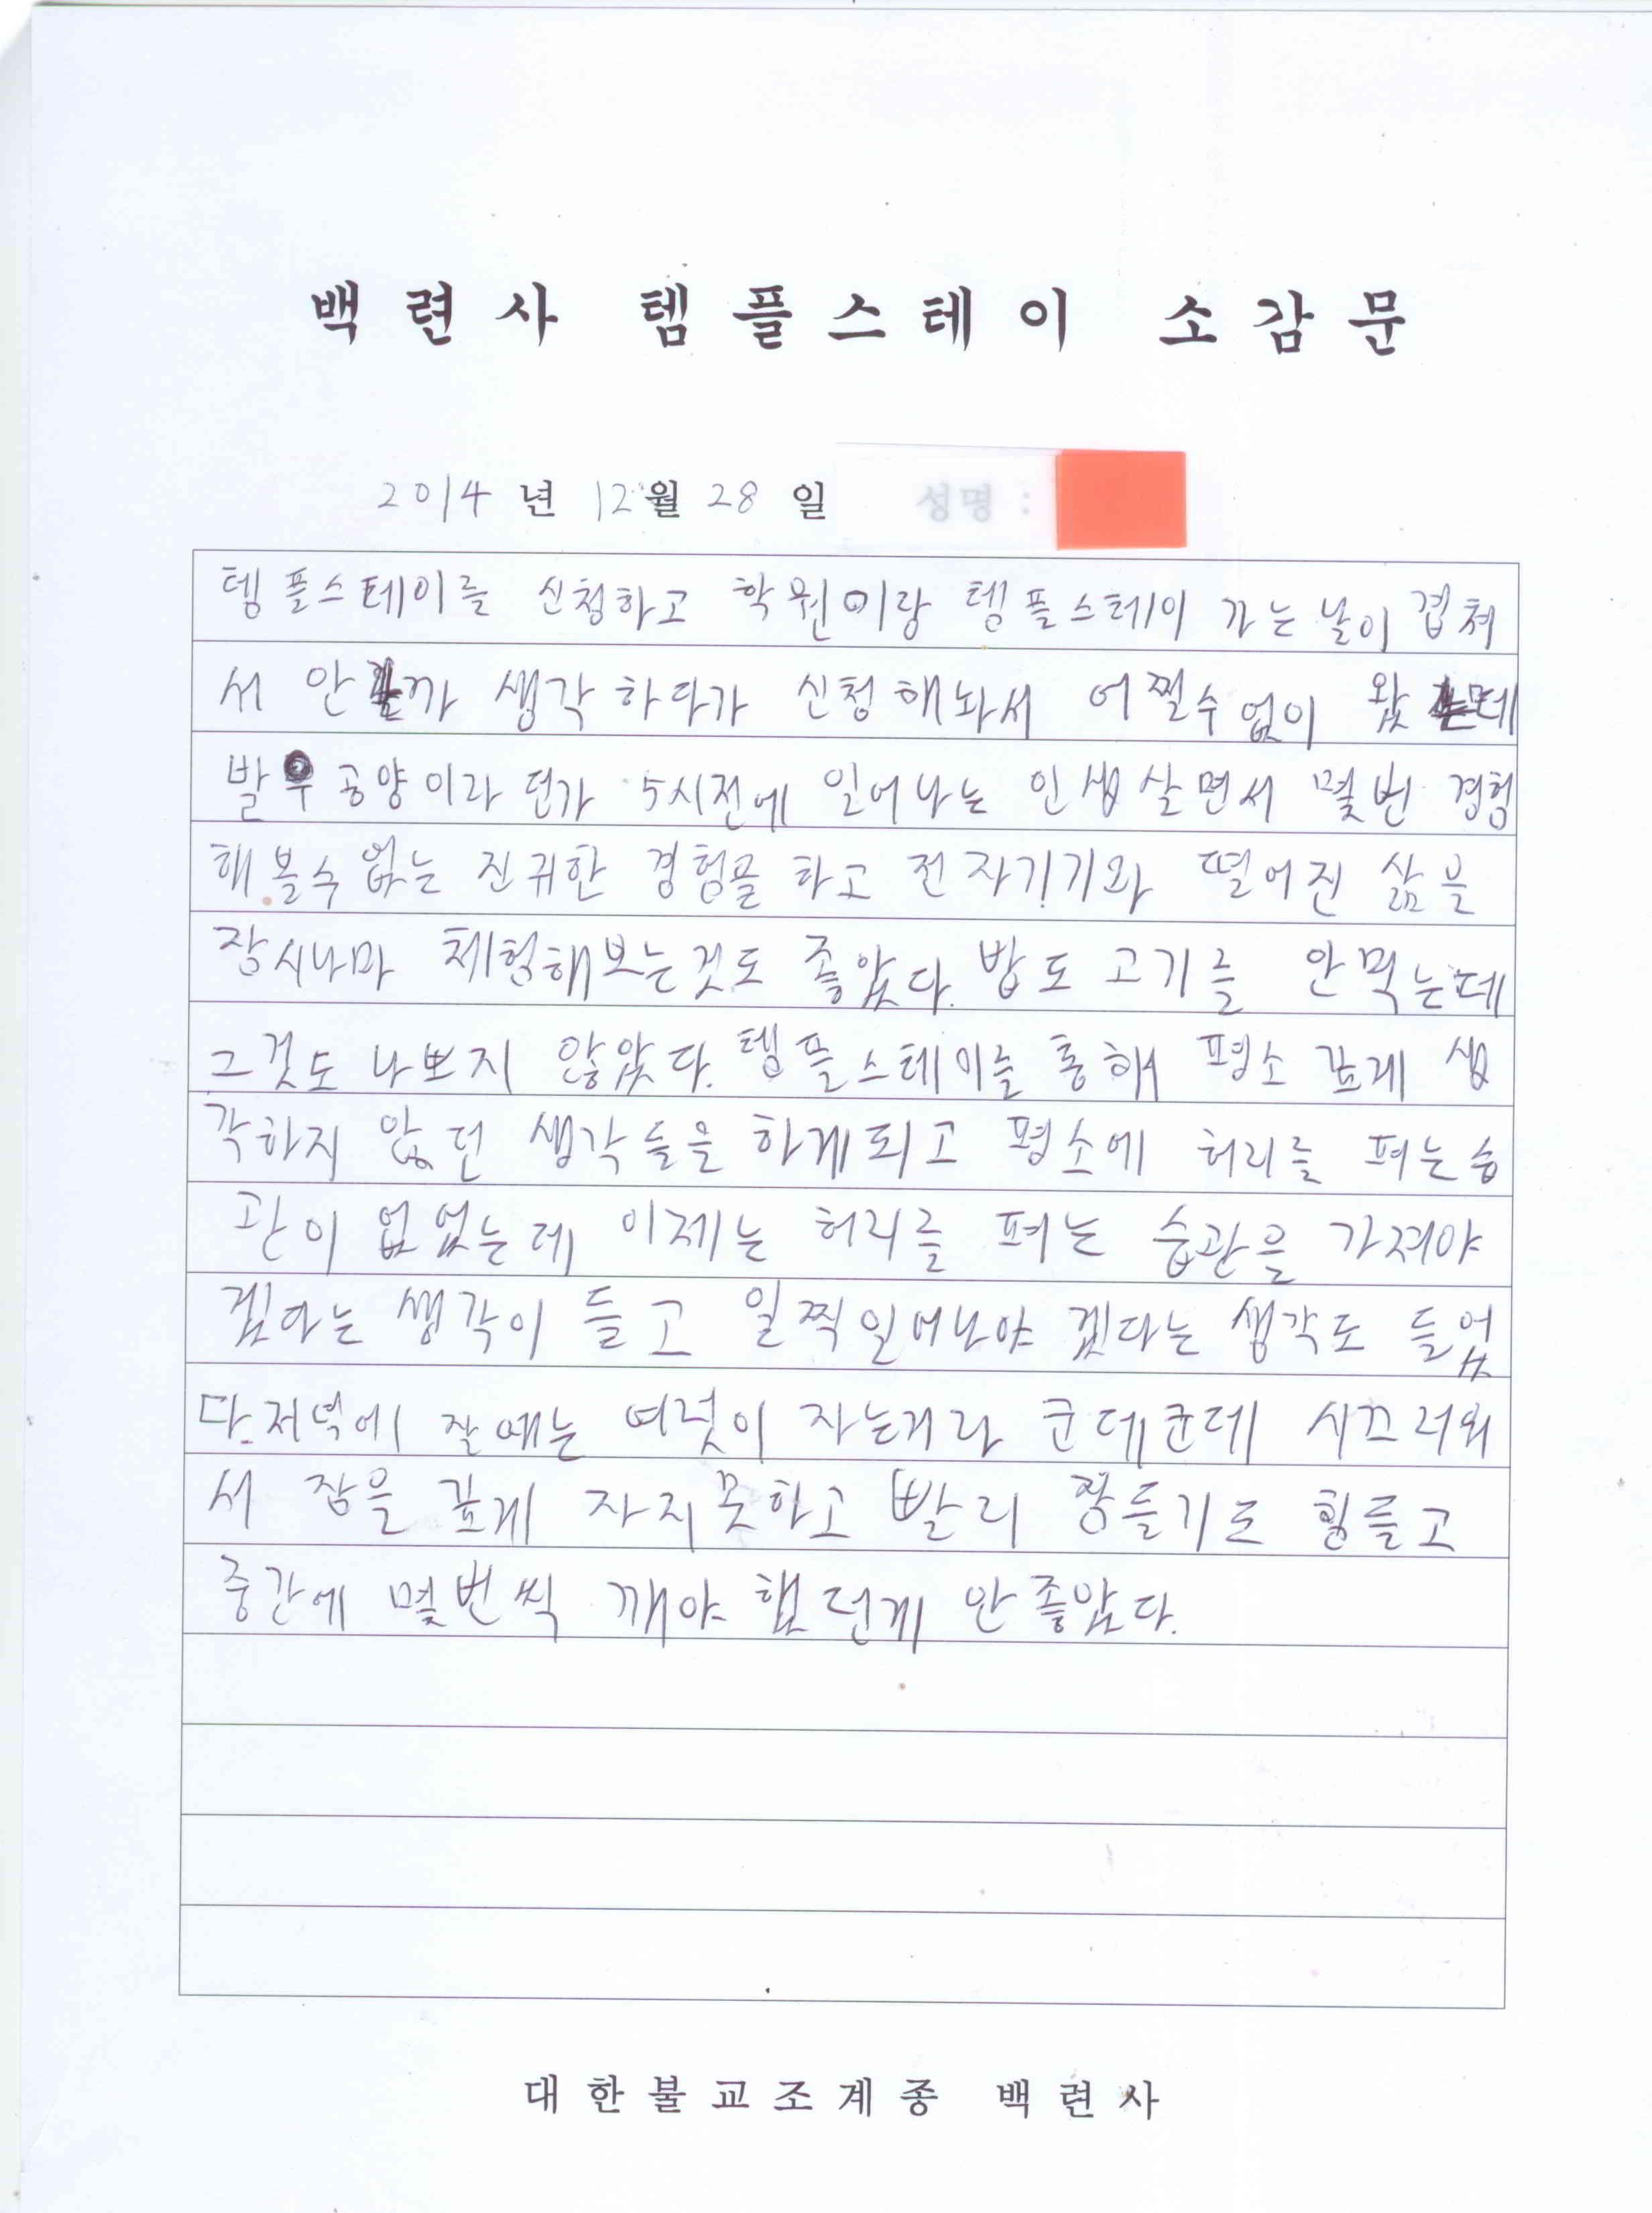 백련사 템플스테이 소감문
2014 년 12 월 28 일 성명 :
템플스테이를 신청하고 학원이랑 템플스테이 가는 날이 겹쳐
서 안갈까 생각하다가 신청해놔서 어쩔수없이 왔는데
발우공양이라던가 5시전에 일어나는 인생살면서 몇번 경험
해볼수 없는 진귀한 경험을 하고 전자기기와 떨어진 삶을
잠시나마 체험해보는것도 좋았다. 밥도 고기를 안먹는데
그것도 나쁘지 않았다. 템플스테이를 통해 평소 깊게 생
각하지 않던 생각들을 하게되고 평소에 허리를 펴는 습
관이 없었는데 이제는 허리를 펴는 습관을 가져야
겠다는 생각이 들고 일찍일어나야 겠다는 생각도 들었
다. 저녁에 잘때는 여럿이 자는거라 군데군데 시끄러워
서 잠을 깊게 자지못하고 빨리 잠들기도 힘들고
중간에 몇번씩 깨야 했던게 안좋았다.
대한불교조계종 백련사